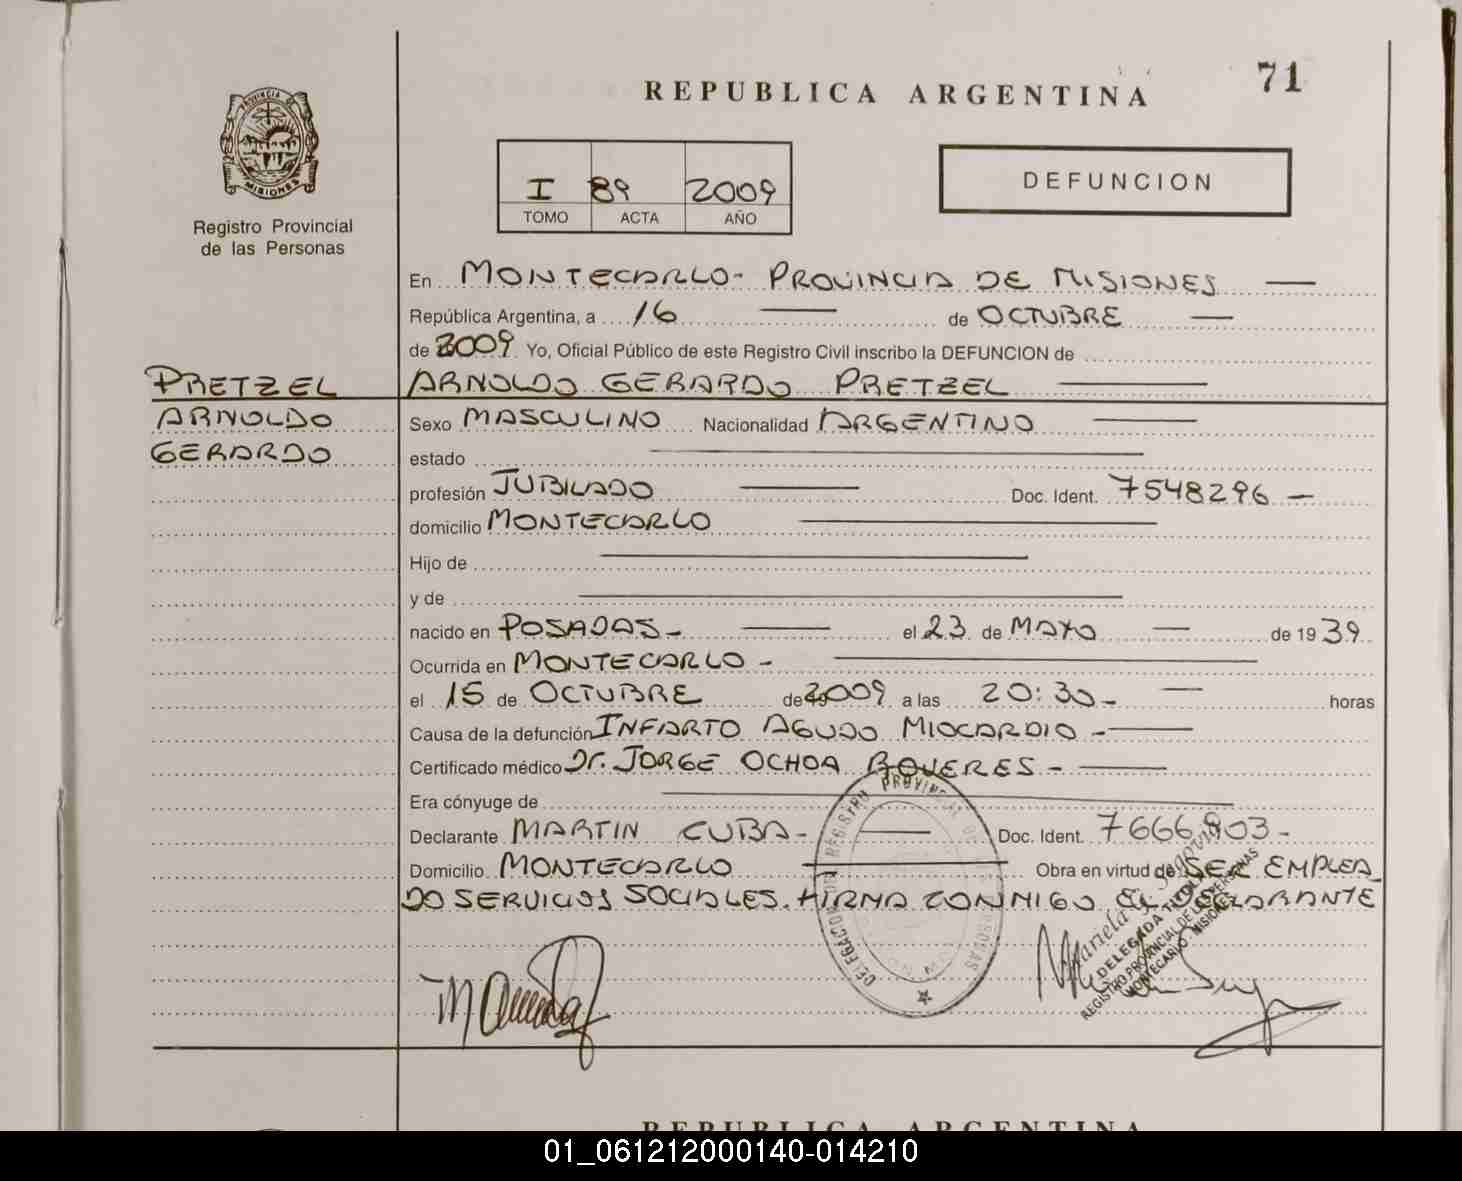 71
REPUBLICA ARGENTINA
PROVINCIA DE
MISIONES
Registro Provincial
de las Personas
I 89 2009
TOMO ACTA AÑO
DEFUNCION
En MONTECARLO - PROVINCIA DE MISIONES
República Argentina, a 16 de OCTUBRE
de 2009 Yo, Oficial Público de este Registro Civil inscribo la DEFUNCION de
PRETZEL ARNOLDO GERARDO PRETZEL
ARNOLDO Sexo MASCULINO Nacionalidad ARGENTINO
GERARDO estado
profesión JUBILADO Doc. Ident. 7548296 -
domicilio MONTECARLO
Hijo de
y de
nacido en POSADAS - el 23 de MAYO de 1939
Ocurrida en MONTECARLO -
el 15 de OCTUBRE de 2009 a las 20:30 - horas
Causa de la defunción INFARTO AGUDO MIOCARDIO -
Certificado médico Dr. JORGE OCHOA BOVERES -
Era cónyuge de
Declarante MARTIN CUBA - Doc. Ident. 7666903 -
Domicilio MONTECARLO Obra en virtud de SER EMPLEA
DO SERVICIOS SOCIALES. FIRMA CONMIGO EL DECLARANTE
REGISTRO PROVINCIAL DE
DELEGACION
Mariela G. Segovia
DELEGADA TITULAR
REGISTRO PROVINCIAL DE LAS PERSONAS
MONTECARLO - MISIONES
REPUBLICA ARGENTINA
01_061212000140-014210